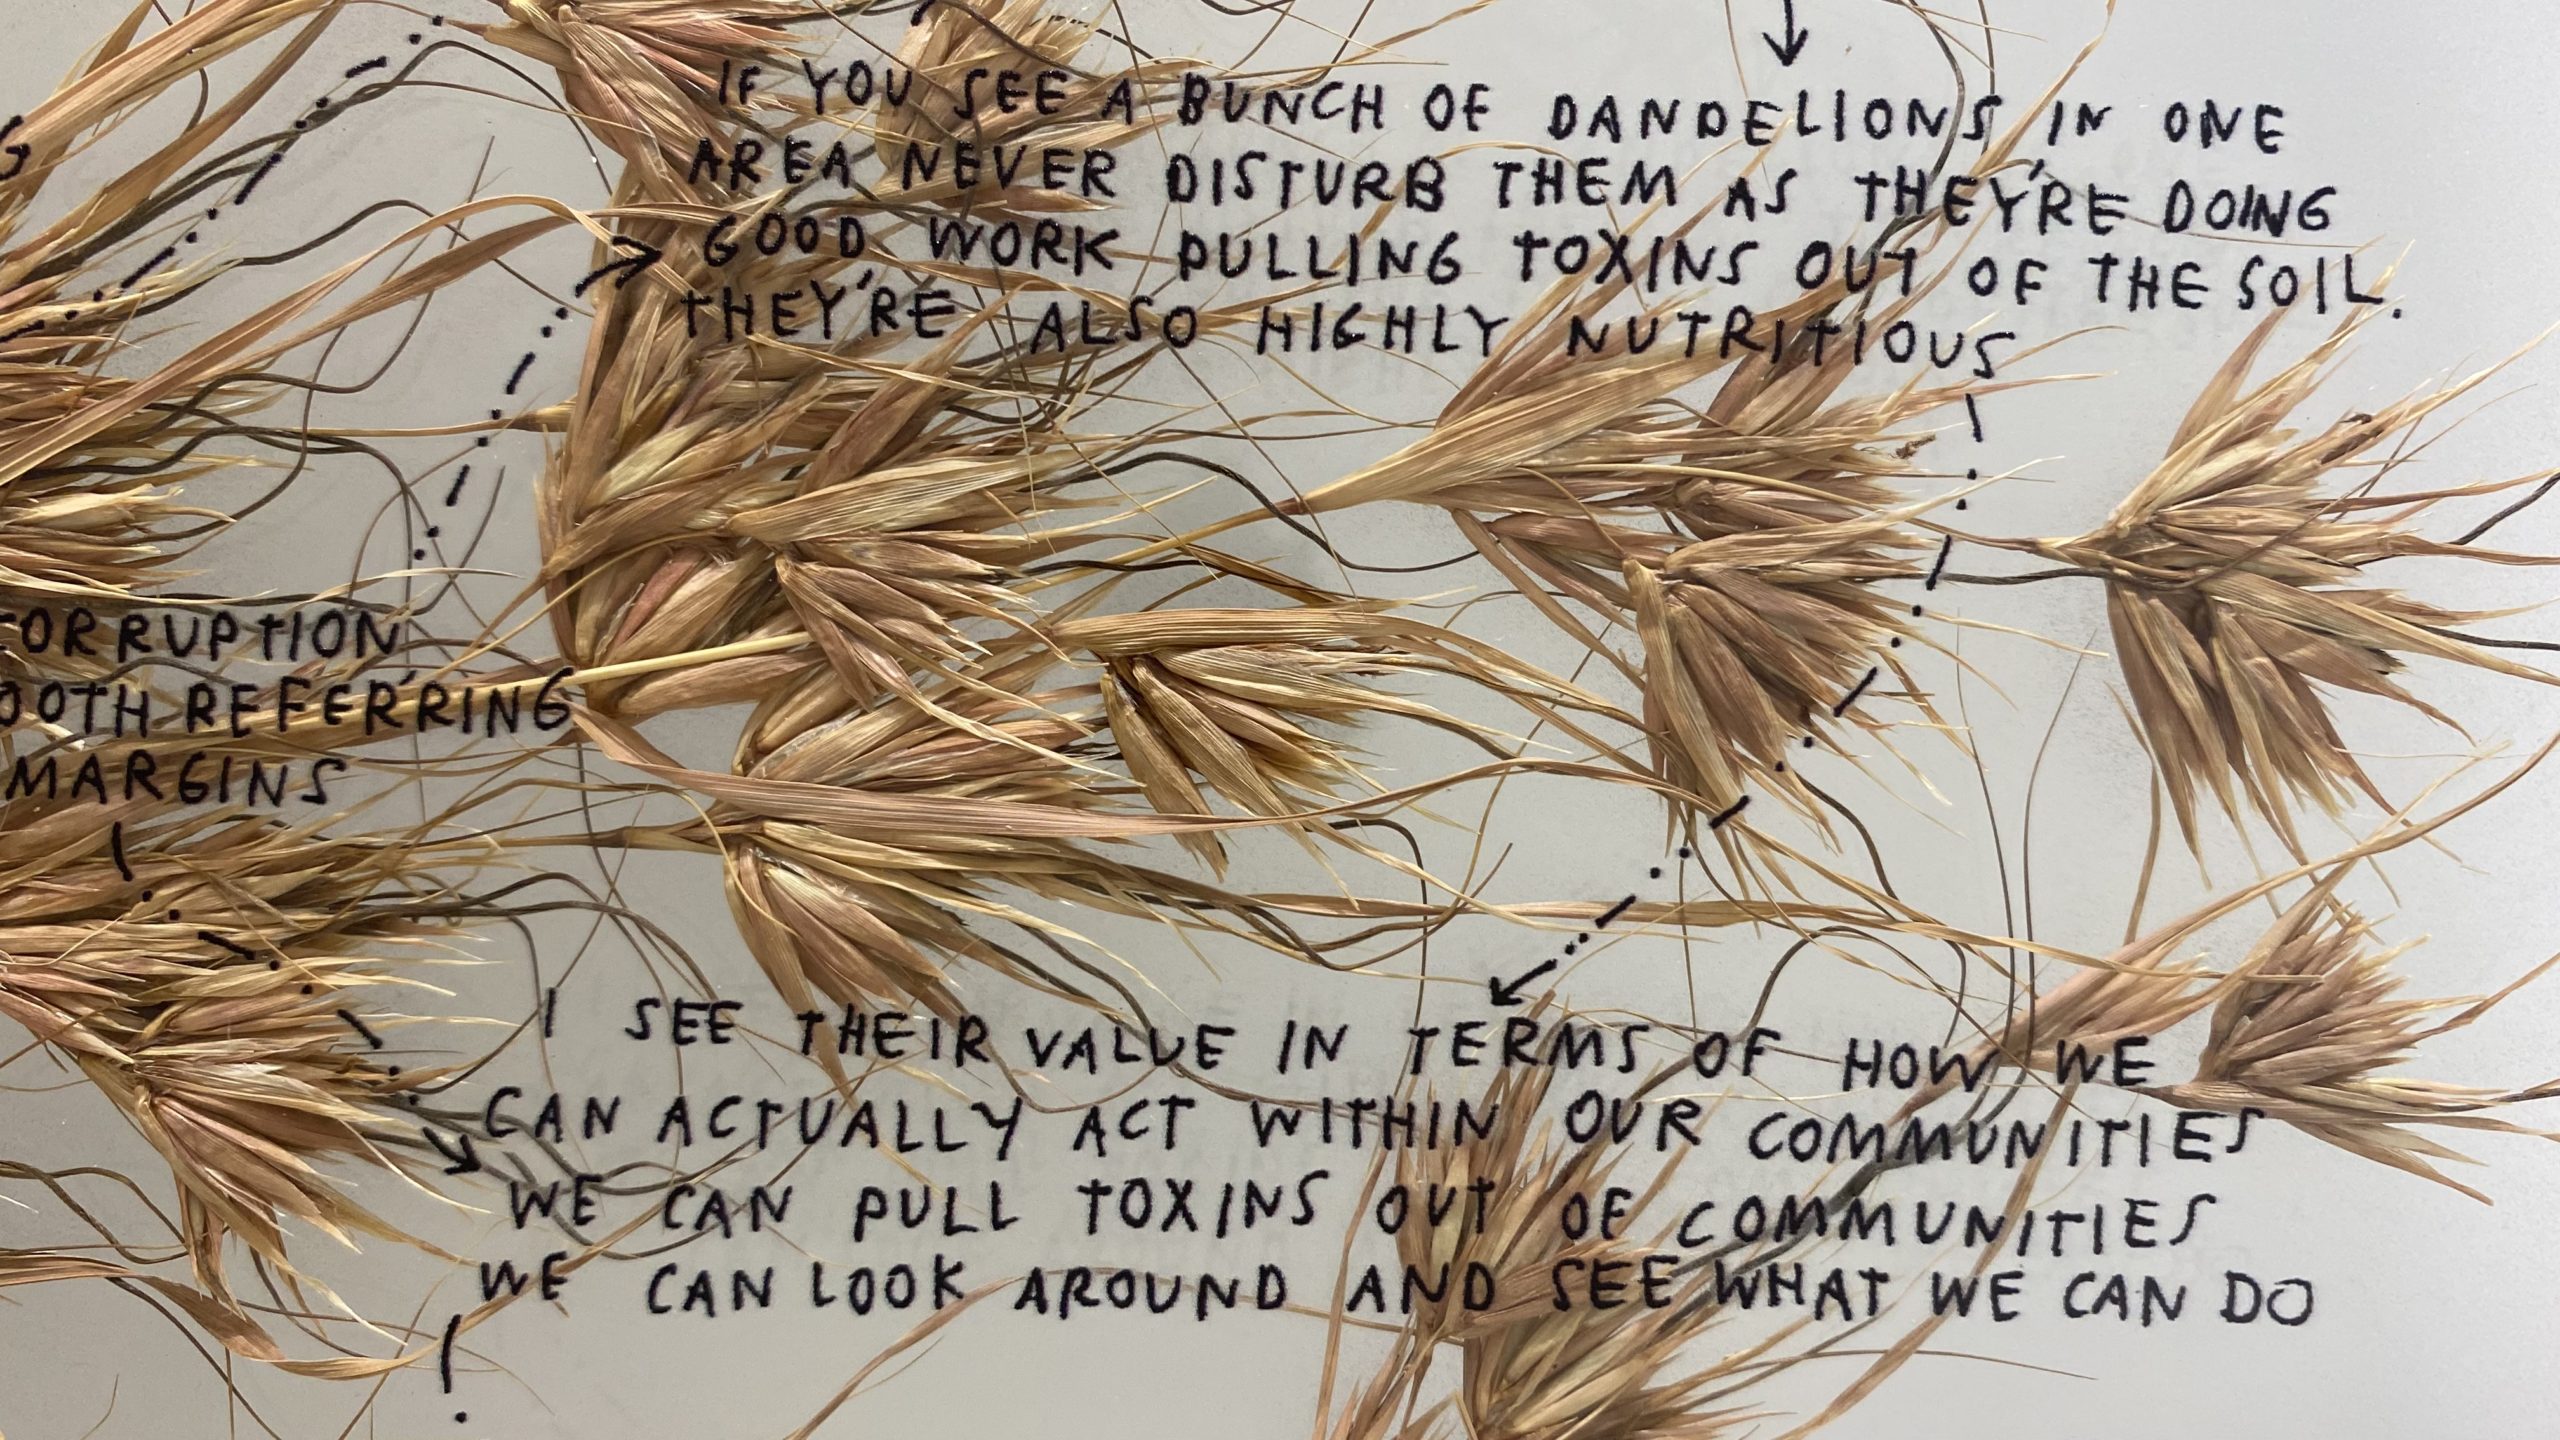 IF YOU SEE A BUNCH OF DANDELIONS IN ONE
AREA NEVER DISTURB THEM AS THEY'RE DOING
GOOD WORK PULLING TOXINS OUT OF THE SOIL.
THEY'RE ALSO HIGHLY NUTRITIOUS
ORRUPTION
OOTH REFERRING
MARGINS
I SEE THEIR VALUE IN TERMS OF HOW WE
CAN ACTUALLY ACT WITHIN OUR COMMUNITIES
WE CAN PULL TOXINS OUT OF COMMUNITIES
WE CAN LOOK AROUND AND SEE WHAT WE CAN DO